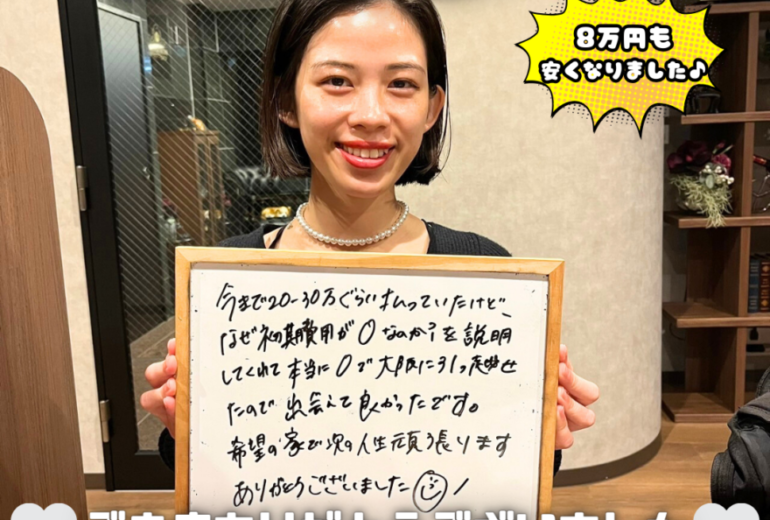 8万円も
安くなりました♪
今まで20-30万ぐらい払っていたけど、
なぜ初期費用が0なのか？を説明
してくれて本当に0で大阪に引っ越せ
たので出会えて良かったです。
希望の家で次の人生頑張ります
ありがとうございました